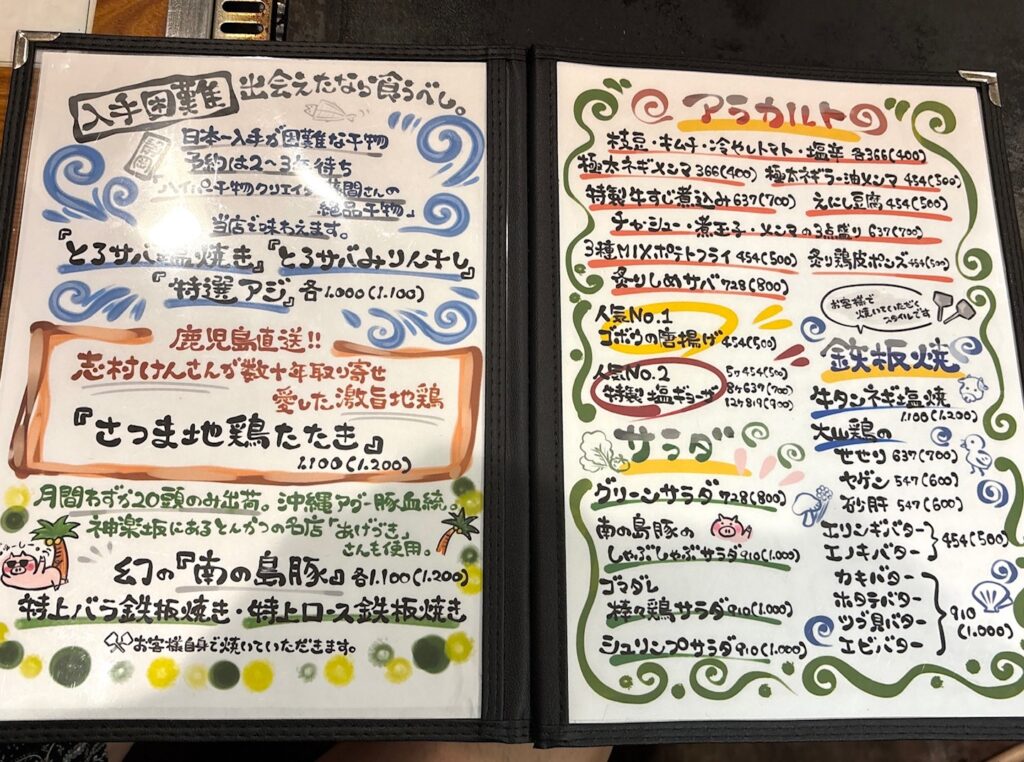 入手困難 出会えたなら食うべし。
日本一入手が困難な干物
予約は2〜3年待ち
「ハイパー干物クリエイター 間さんの
絶品干物」
当店で味わえます。
『とろサバ塩焼き』『とろサバみりん干し』
『特選アジ』各1,000(1,100)
鹿児島直送!!
志村けんさんが数十年取り寄せ
愛した激旨地鶏
『さつま地鶏たたき』
1,100(1,200)
月間わずか20頭のみ出荷。沖縄アグー豚血統。
神楽坂にあるとんかつの名店「あげづき」
さんも使用。
幻の『南の島豚』各1,100(1,200)
特上バラ鉄板焼き・特上ロース鉄板焼き
お客様自身で焼いていただきます。
アラカルト
枝豆・キムチ・冷やしトマト・塩辛 各366(400)
極太ネギメンマ366(400) 極太ネギラー油メンマ 454(500)
特製牛すじ煮込み637(700) えにし豆腐454(500)
チャーシュー・煮玉子・メンマの3点盛り 637(700)
3種MIXポテトフライ 454(500) 炙り鶏皮ポンズ454(500)
炙りしめサバ728(800)
人気No.1
ゴボウの唐揚げ454(500)
人気No.2
特製 塩ギョーザ
5ヶ454(500)
8ヶ637(700)
12ヶ819(900)
サラダ
グリーンサラダ728(800)
南の島豚の
しゃぶしゃぶサラダ910(1,000)
ゴマダレ
棒々鶏サラダ910(1,000)
シュリンプサラダ910(1,000)
お客様で
焼いていただく
スタイルです
鉄板焼
牛タンネギ塩焼
1,100(1,200)
大山鶏の
せせり 637(700)
ヤゲン 547(600)
砂肝 547(600)
エリンギバター
エノキバター
454(500)
カキバター
ホタテバター
ツブ貝バター
エビバター
910
(1,000)